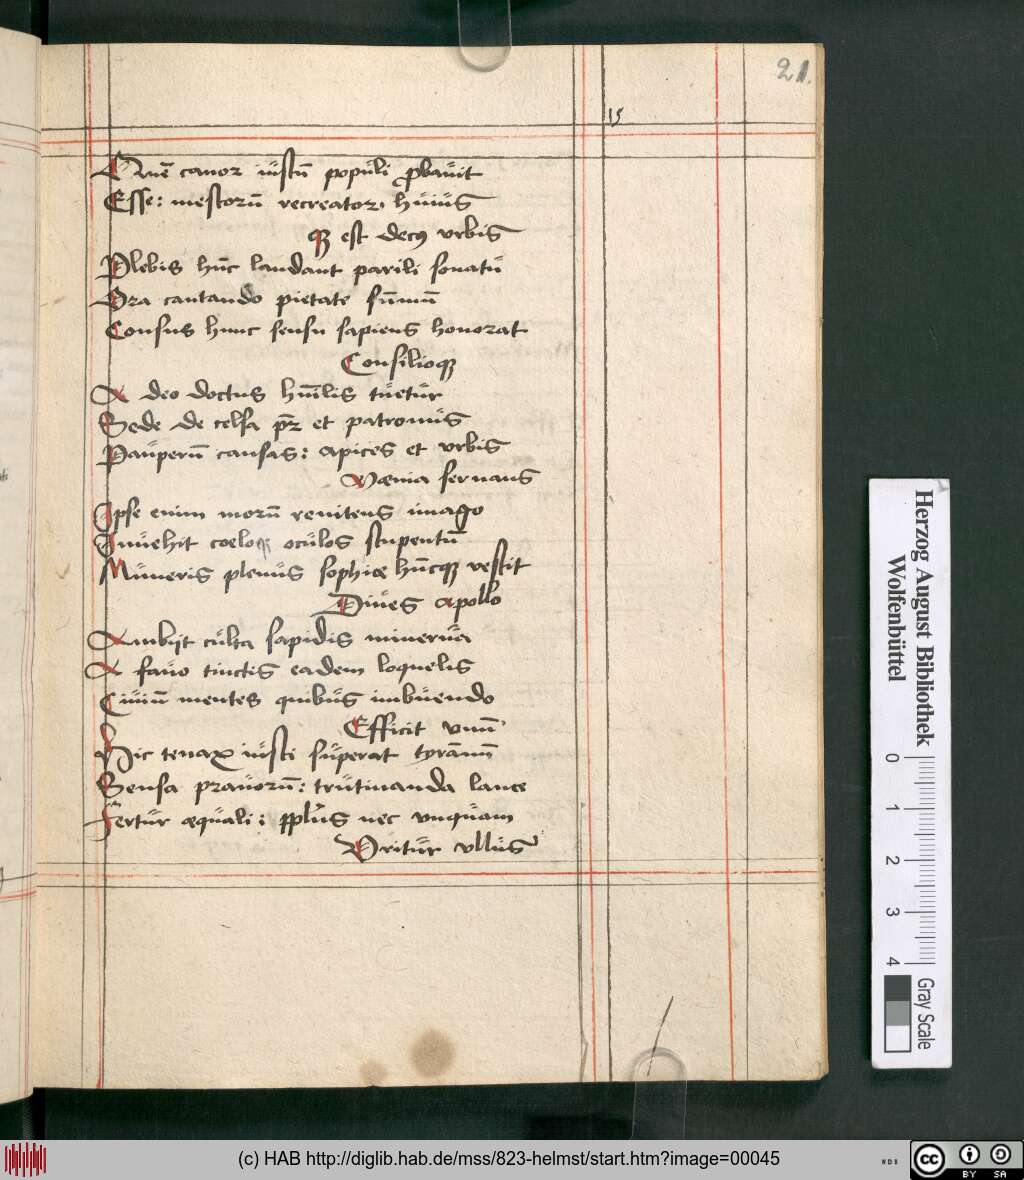 21.
15
Quē canor iustū populi ꝓbauit
Esse: mestorū recreator, huius
qꝫ est decꝰ vrbis
Plebis hūc laudant parili sonatu
Ora cantando pietate sūmū
Consus hunc sensu sapiens honorat
Consilioqꝫ
A deo doctus hūilis tuetur
Sede de celsa pr̄ et patronus
Pauperū causas: apices et vrbis
Mœnia seruans
Ipse enim morū renitens imago
Inuehit coeloqꝫ oculos stupentū
Muneris plenus sophiæ hūcqꝫ vestit
Diues apollo
Ambijt culta sapidis minerua
A fauo tinctis eadem loquelis
Ciuiū mentes quibus imbuendo
Efficit vnū
Hic tenax iusti superat tyrānū
Sensa prauorū: trutinanda lance
Fertur æquali: nec vnquam
Oritur vllus
Herzog August Bibliothek
Wolfenbüttel
0 1 2 3 4
Gray Scale
(c) HAB http://diglib.hab.de/mss/823-helmst/start.htm?image=00045
WDB
cc
BY SA